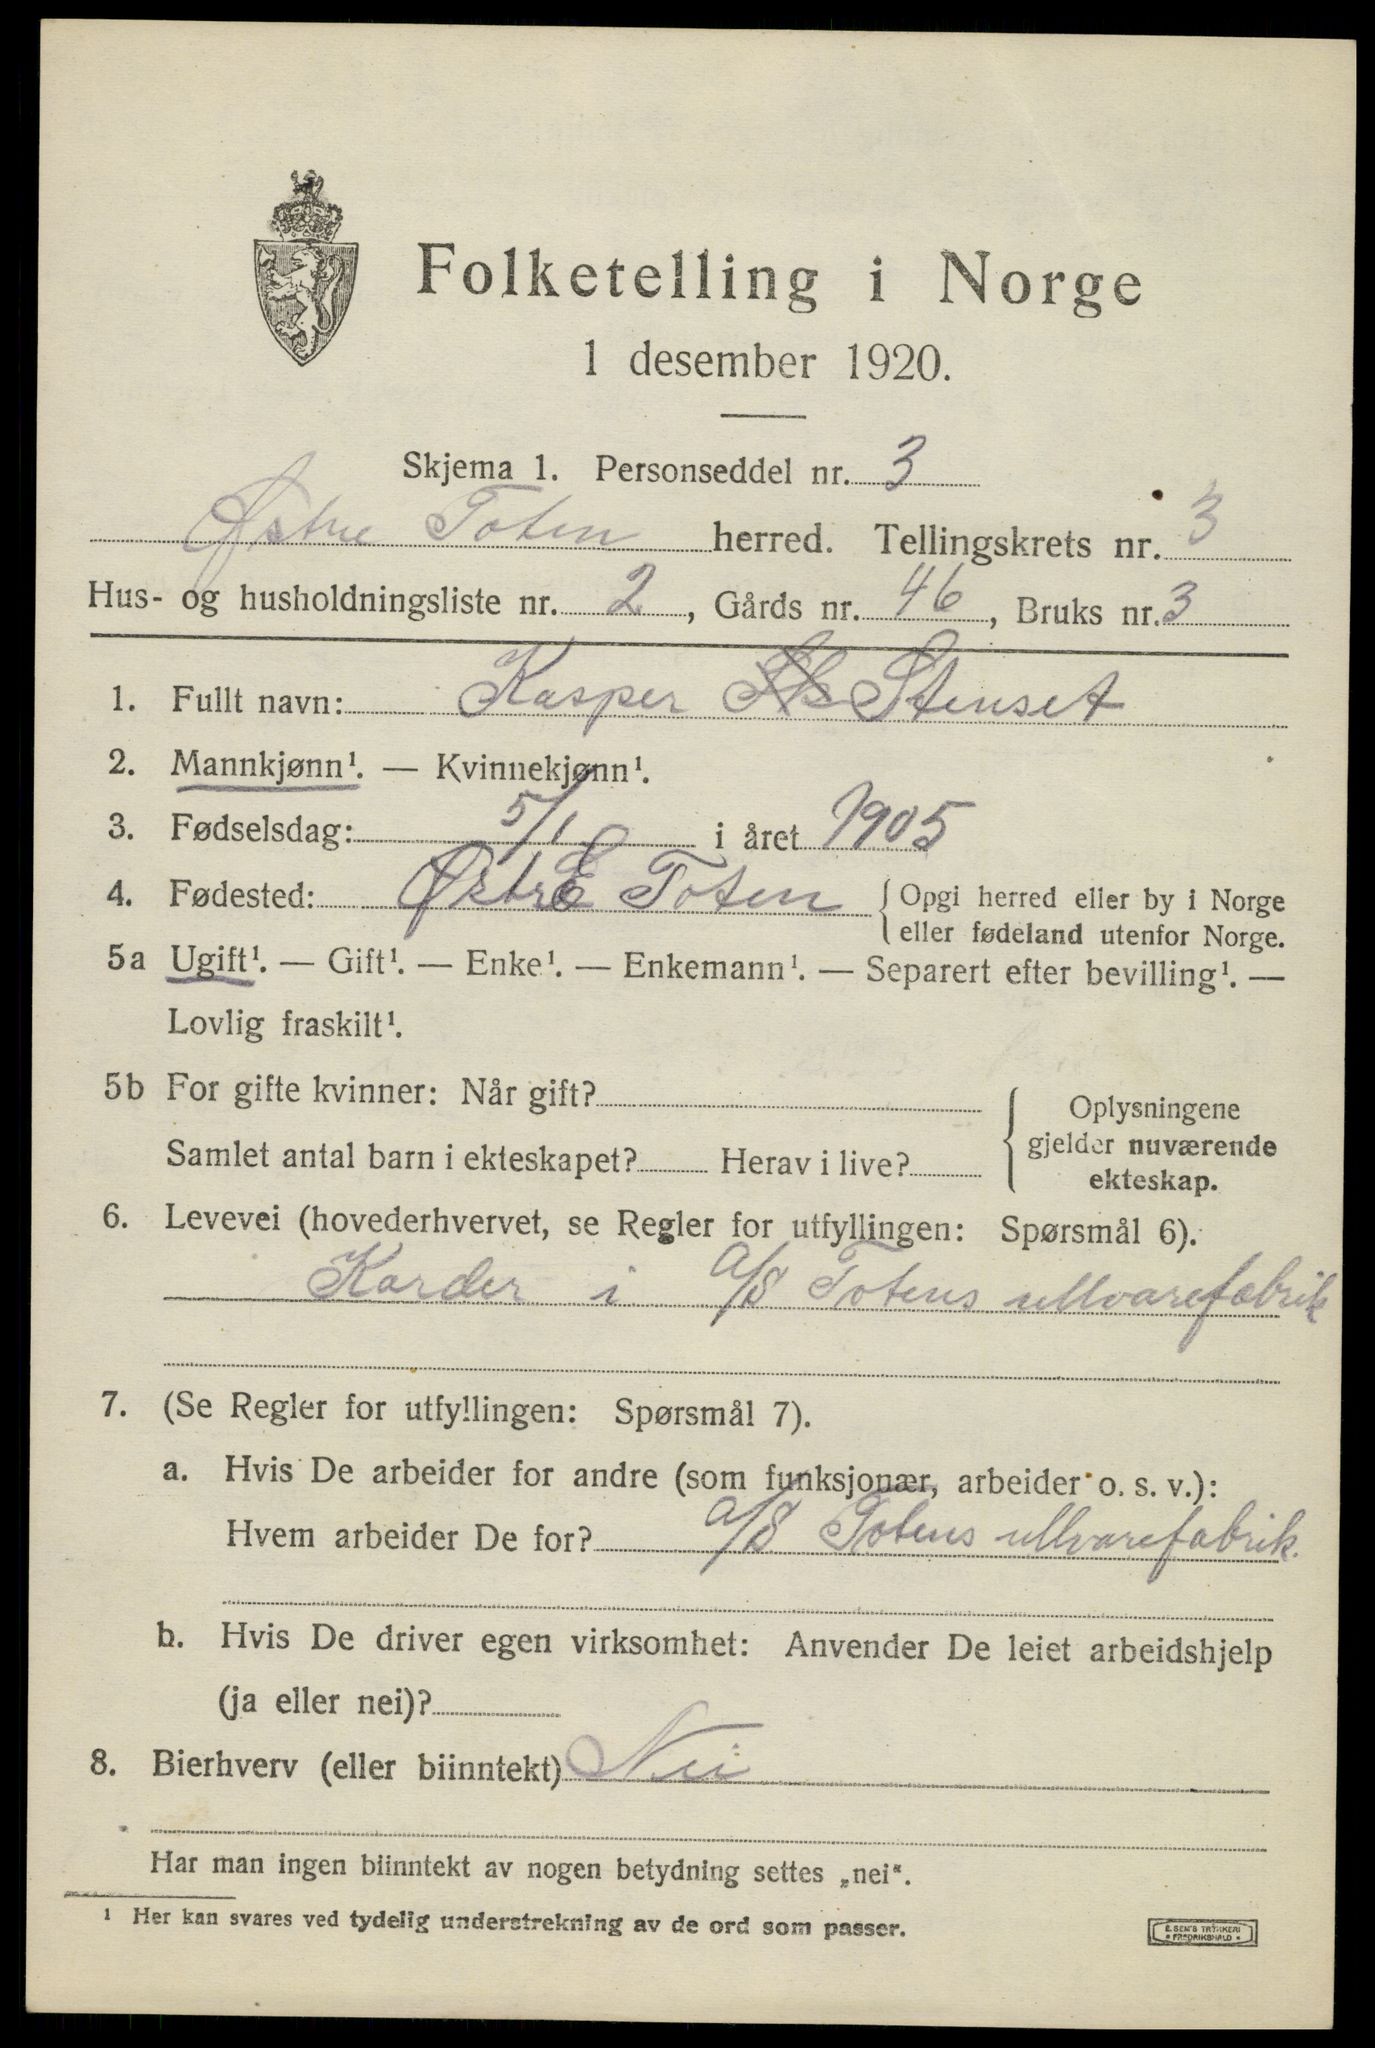 Folketelling i Norge
1 desember 1920.
Skjema 1. Personseddel nr. 3
Østre Toten herred. Tellingskrets nr. 3
Hus- og husholdningsliste nr. 2, Gårds nr. 46, Bruks nr. 3
1. Fullt navn: Kasper Stenset
2. Mannkjønn¹. — Kvinnekjønn¹.
3. Fødselsdag: 5/1 i året 1905
4. Fødested: Østre Toten { Opgi herred eller by i Norge
eller fødeland utenfor Norge.
5a Ugift¹. — Gift¹. — Enke¹. — Enkemann¹. — Separert efter bevilling¹. —
Lovlig fraskilt¹.
5b For gifte kvinner: Når gift?
Samlet antal barn i ekteskapet? Herav i live?
{ Oplysningene
gjelder nuværende
ekteskap.
6. Levevei (hovederhvervet, se Regler for utfyllingen: Spørsmål 6).
Karder i a/s Totens ullvarefabrik
7. (Se Regler for utfyllingen: Spørsmål 7).
a. Hvis De arbeider for andre (som funksjonær, arbeider o. s. v.):
Hvem arbeider De for? a/s Totens ullvarefabrik.
b. Hvis De driver egen virksomhet: Anvender De leiet arbeidshjelp
(ja eller nei)?
8. Bierhverv (eller biinntekt) Nei
Har man ingen biinntekt av nogen betydning settes „nei“.
¹ Her kan svares ved tydelig understrekning av de ord som passer.
E. SEM'S TRYKKERI
FREDRIKSHALD